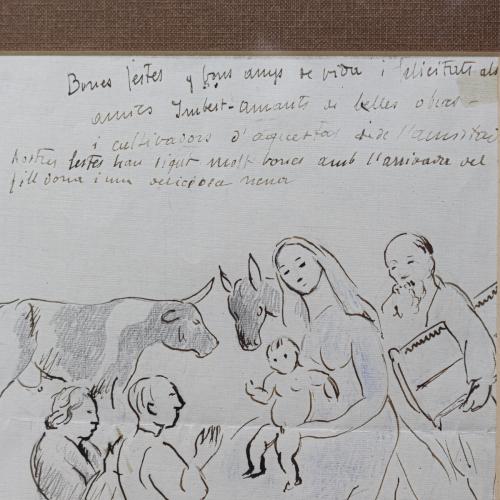 Bones festes y bons anys de vida i felicitats als
amics Imbert-amants de belles obres -
i cultivadors d'aquestas de l'amistad
Nostres festes han sigut molt bones amb l'arrivada del
fill dona i una deliciosa nena